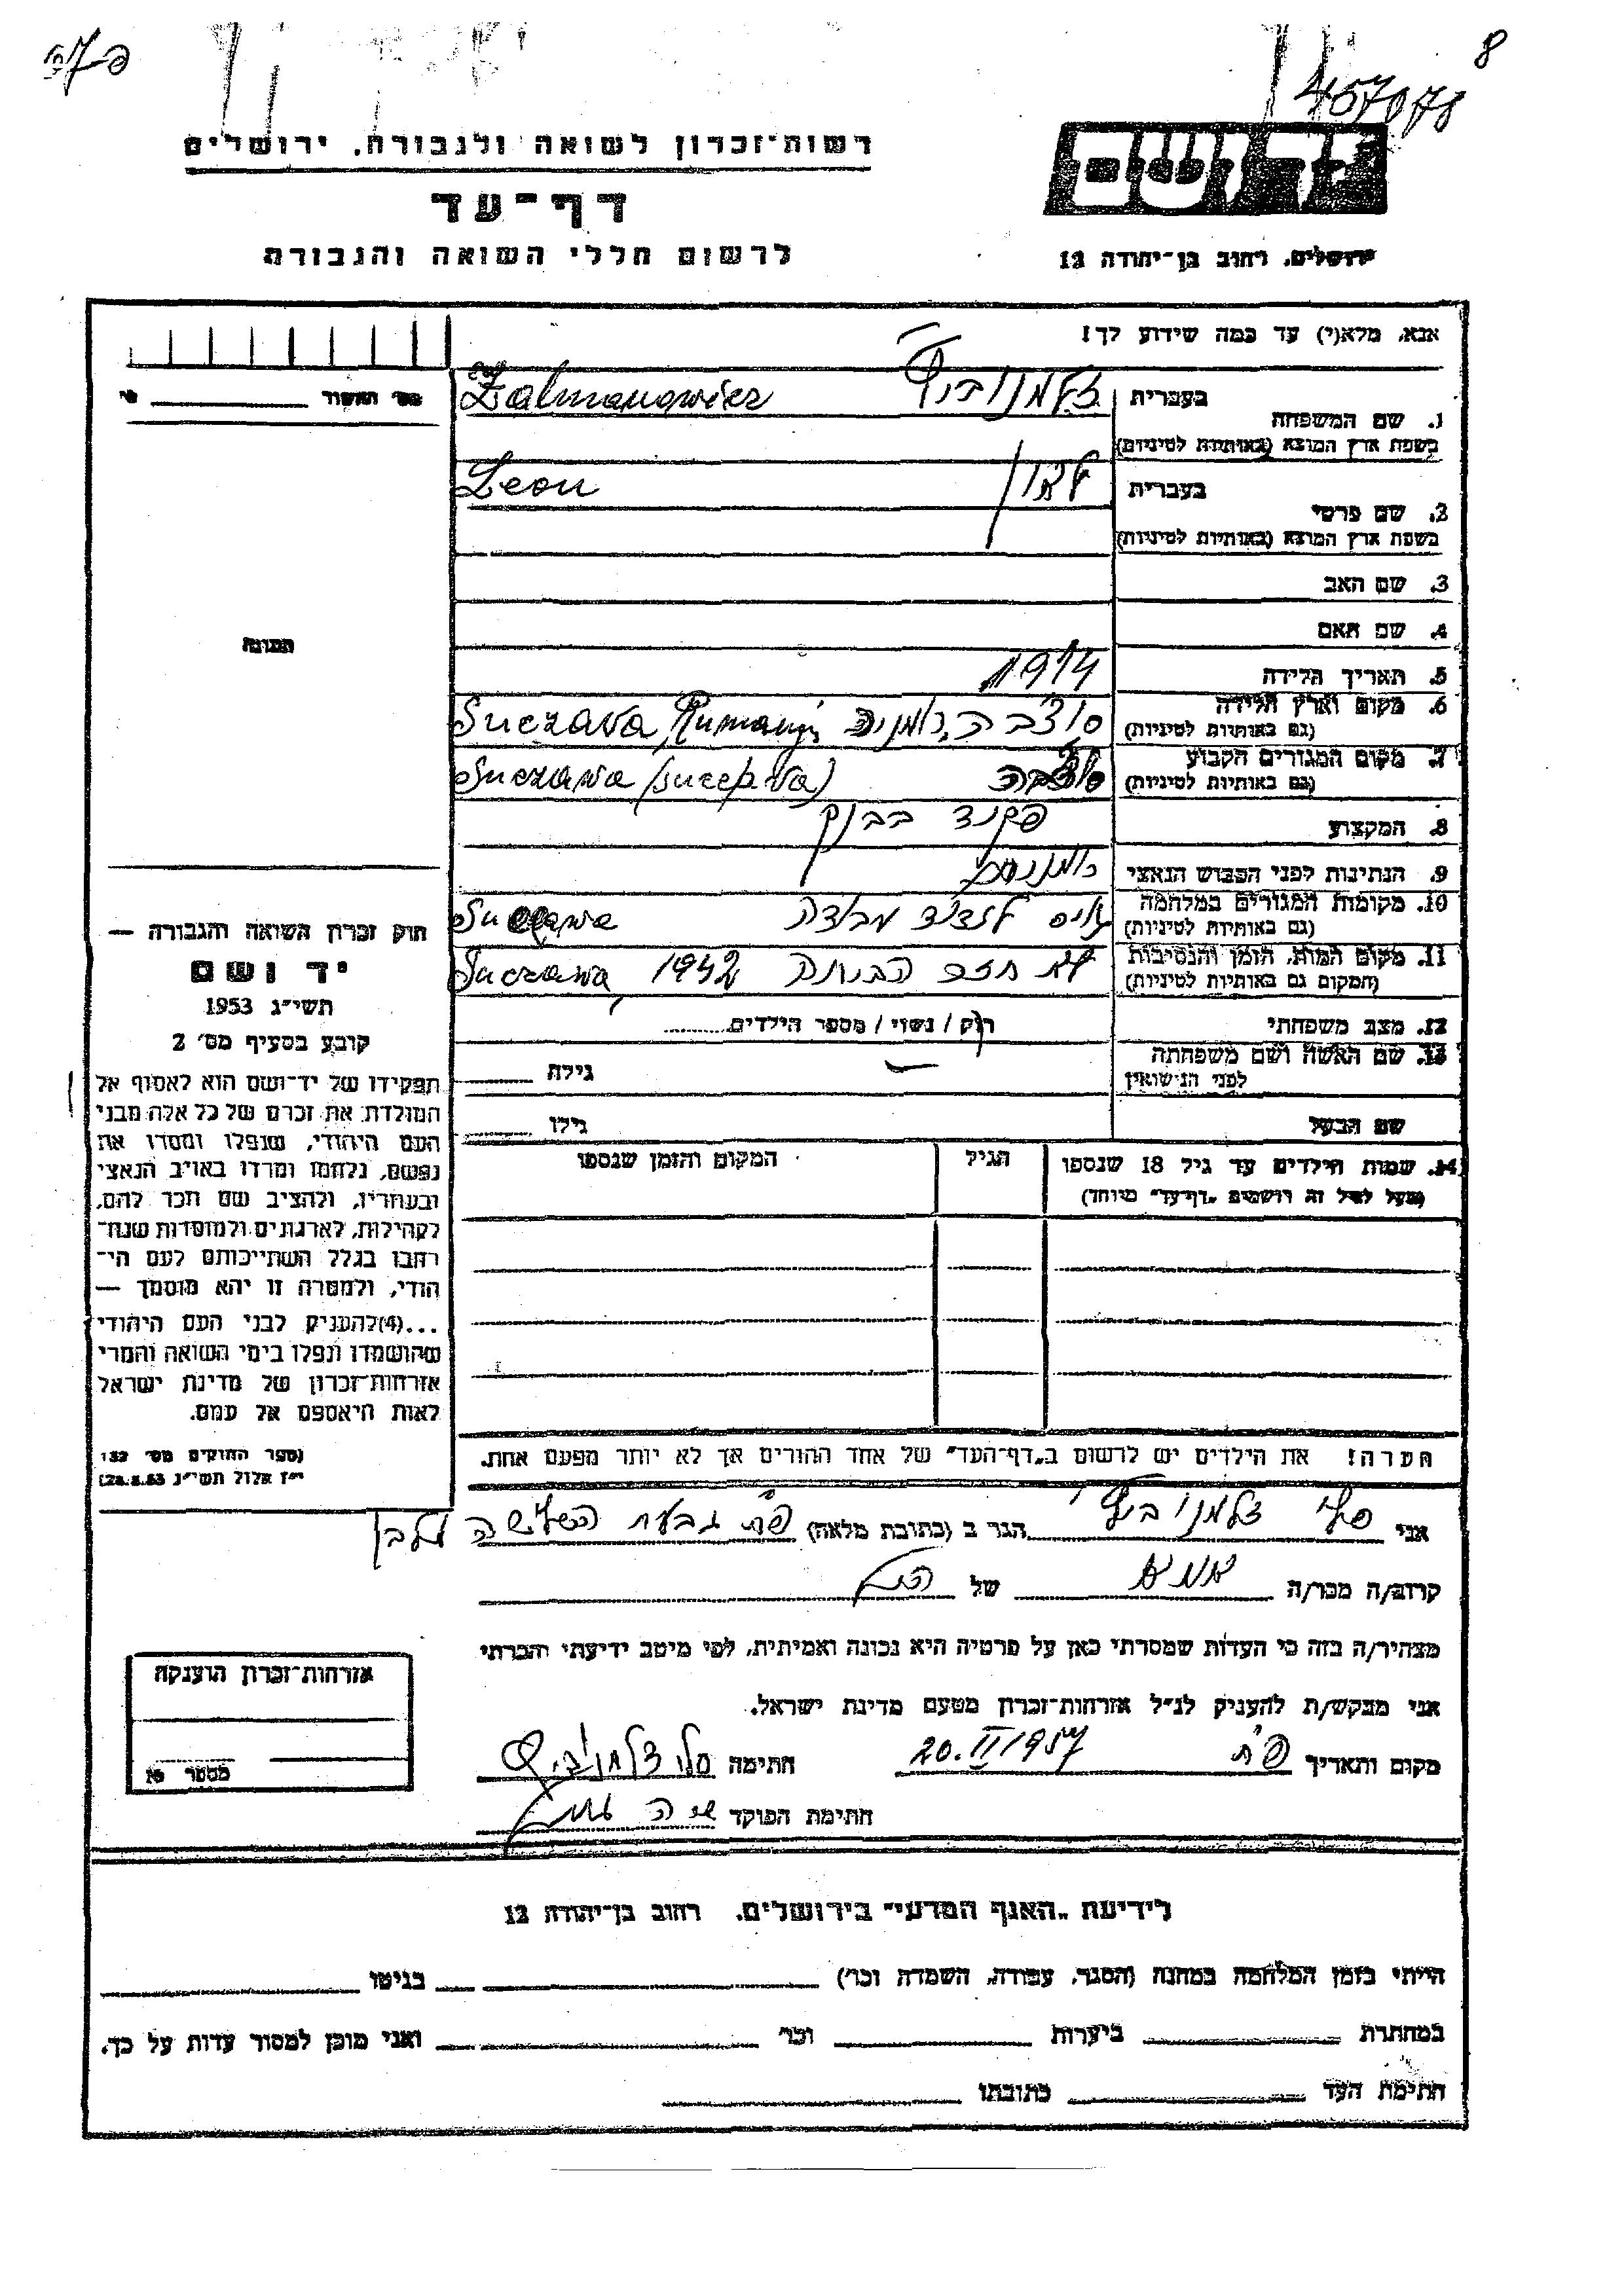 8
457078
רשות־זכרון לשואה ולגבורה. ירושלים
דף־עד
לרשום חללי השואה והגבורה
יד ושם
ירושלים, רחוב בן־יהודה 12
אנא, מלא(י) עד כמה שידוע לך!
1. שם המשפחה
בעברית זלמנוביץ
בשפת ארץ המוצא (באותיות לטיניות) Zalmanowicz
2. שם פרטי
בעברית לאון
בשפת ארץ המוצא (באותיות לטיניות) Leon
3. שם האב
4. שם האם
5. תאריך הלידה 1914
6. מקום וארץ הלידה
(גם באותיות לטיניות) סוצ'בה, רומניה Suczava, Rumanij
7. מקום המגורים הקבוע
(גם באותיות לטיניות) סוצ'בה Suczawa (Suceava)
8. המקצוע פקיד בבנק
9. הנתינות לפני הכבוש הנאצי רומנית
10. מקומות המגורים במלחמה
(גם באותיות לטיניות) גויס לצבא עבודה Suczawa
11. מקום המות, הזמן והנסיבות
(המקום גם באותיות לטיניות) לא חזר הביתה 1942 Suczawa,
12. מצב משפחתי רוק / נשוי / מספר הילדים
13. שם האשה ושם משפחתה
לפני הנישואין
גילה
שם הבעל
גילו
14. שמות הילדים עד גיל 18 שנספו
(מעל לגיל זה רושמים „דף־עד” מיוחד)
הגיל
המקום והזמן שנספו
הערה! את הילדים יש לרשום ב„דף־העד” של אחד ההורים אך לא יותר מפעם אחת.
מס' האשור
התמונה
חוק זכרון השואה והגבורה —
יד ושם
תשי״ג 1953
קובע בסעיף מס׳ 2
תפקידו של יד־ושם הוא לאסוף אל
המולדת את זכרם של כל אלה מבני
העם היהודי, שנפלו ומסרו את
נפשם, נלחמו ומרדו באויב הנאצי
ובעוזריו, ולהציב שם וזכר להם,
לקהילות, לארגונים ולמוסדות שנח־
רבו בגלל השתייכותם לעם הי־
הודי, ולמטרה זו יהא מוסמך —
...(4)להעניק לבני העם היהודי
שהושמדו ונפלו בימי השואה והמרי
אזרחות־זכרון של מדינת ישראל
לאות היאספם אל עמם.
(ספר החוקים מס׳ 132
י״ז אלול תשי״ג 28.8.53)
אני סלי זלמנוביץ הגר ב (כתובת מלאה) פ״ת גבעת השלושה
קרוב/ה מכר/ה אמא של הנ״ל
מצהיר/ה בזה כי העדות שמסרתי כאן על פרטיה היא נכונה ואמיתית, לפי מיטב ידיעתי והכרתי
אני מבקש/ת להעניק לנ״ל אזרחות־זכרון מטעם מדינת ישראל.
מקום ותאריך פ״ת 20.II 1957 חתימה סלי זלמנוביץ
חתימת הפוקד
אזרחות־זכרון הוענקה
מספר
לידיעת „האגף המדעי” בירושלים. רחוב בן־יהודה 12
הייתי בזמן המלחמה במחנה (הסגר, עבודה, השמדה וכו׳) בגיטו
במחתרת ביערות וכו׳ ואני מוכן למסור עדות על כך.
חתימת העד כתובתו